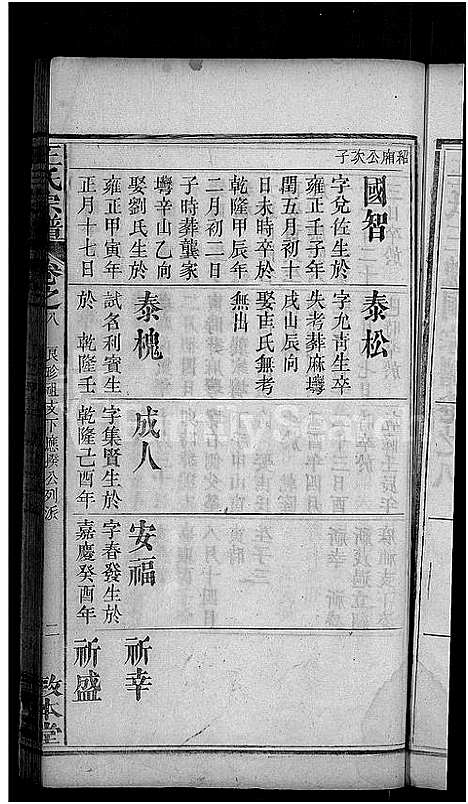 紹廟公次子
國智
字兌佐生於
雍正壬子年
閏五月初十
日未時卒於
乾隆甲辰年
二月初二日
子時葬龔家
塆辛山乙向
娶劉氏生於
雍正甲寅年
正月十七日
泰松
字允青生卒
失考葬麻塆
戌山辰向
娶由氏無考
無出
泰槐
試名利賓生
於 乾隆壬
成人
字集賢生於
乾隆己酉年
安福
字春發生於
嘉慶癸酉年
祈幸
祈盛
王氏宗譜
卷之八
二
敦本堂